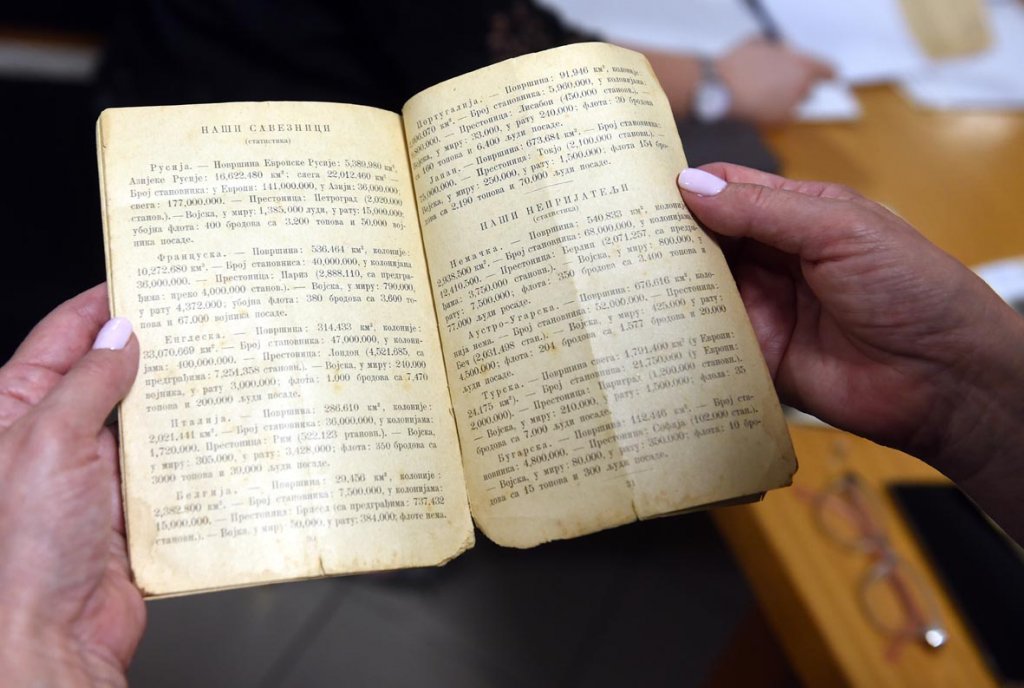 НАШИ САВЕЗНИЦИ
(статистика)
Русија. — Површина Европске Русије: 5,389.980 км²,
Азијске Русије: 16,622.480 км²; свега 22,012.460 км².
Број становника: у Европи: 141,000.000, у Азији: 36,000.000;
свега: 177,000.000. — Престоница: Петроград (2,020.000
станов.). — Војска, у миру: 1,385.000 људи, у рату: 15,000.000;
убојна флота: 400 бродова са 3.200 топова и 50.000 вој-
ника посаде.
Француска. — Површина: 536.464 км², колоније:
10,272.680 км². — Број становниса: 40,000.000, у колонијама
36,000.000. — Престоница: Париз (2,888.110, са предгра-
ђима: преко 4,000.000 станов.). — Војска, у миру: 790.000,
у рату 4,372.000; убојна флота: 380 бродова са 3.600 то-
пова и 67.000 војника посаде.
Енглеска. — Површника: 314.433 км², колоније:
33,070.669 км². — Број становника: 47,000.000, у колони-
јама: 400,000.000. — Престоница: Лондон (4,521.685, са
предграђима: 7,251.358 станови.). — Војска, у миру: 240.000
војника, у рату 3,000.000; флота: 1.000 бродова са 7.470
топова и 200.000 људи посаде.
Италија. — Површина: 286.610 км², колоније:
2,021.441 км². — Број становника: 36,000.000, у колонијама:
1,720.000. Престоница: Рим (522.123 станови.). — Војска,
у миру: 305.000, у рату: 3,428.000; флота: 350 бродова са
3000 топова и 39.000 људи посаде.
Белгија. — Површина: 29.456 км², колоније:
2,382.800 км². — Број становника: 7,500.000, у колонијама:
15,000.000. — Престоница: Брисел (са предграђима: 737.432
станови.). — Војска, у миру: 50.000, у рату: 384.000; флоте нема.
30
Португалија. — Површина: 91.946 км², колоније:
км². — Број становника: 5,960.000, у колонијама:
— Престоница: Лисабон (450.000 станови.). —
Војска, у миру: 33.000, у рату 240.000; флота: 20 бродова
са 160 топова и 6.400 људи посаде.
Јапан. — Површина: 673.684 км². — Број становника:
75,000.000. — Престоница: Токјо (2,100.000 станови.). —
Војска, у миру: 250.000, у рату: 1,500.000; флота 154 бро-
дова са 2.190 топова и 70.000 људи посаде.
НАШИ НЕПРИЈАТЕЉИ
(статистика)
Немачка. — Површина: 540.833 км², колонија:
2,938.500 км². — Број становника: 68,000.000, у колонијама:
12,410.500. — Престоница: Берлин (2,071.257, са предгра-
ђама: 3,750.000 станови.). — Војска, у миру: 800.000, у
рату: 7,500.000; флота: 350 бродова са 3.400 топова и
77.000 људи посаде.
Аустро-Угарска. — Површина: 676.616 км², коло-
нија нема. — Број становника: 52,000.000. — Престоница:
Беч (2,031.498 стан.). — Војска, у миру: 425.000 у рату:
4,500.000; флота: 204 бродова са 1.577 топова и 20.000
људи посаде.
Турска. — Површина свега: 1,791.400 км² (у Европи:
24.175 км²). — Број становника: 21,750.000 (у Европи:
2,000.000). — Престоница: Цариград (1,200.000 станови.).
— Војска, у миру: 210.000, у рату: 1,500.000; флота: 35
бродова са 7.000 људи посаде.
Бугарска. — Површина: 112.446 км². — Број ста-
новника: 4,800.000. — Престоница: Софија (102.000 стан.).
— Војска, у миру: 80.000, у рату: 350.000; флота: 10 бро-
дова са 15 топова и 300 људи посаде.
31